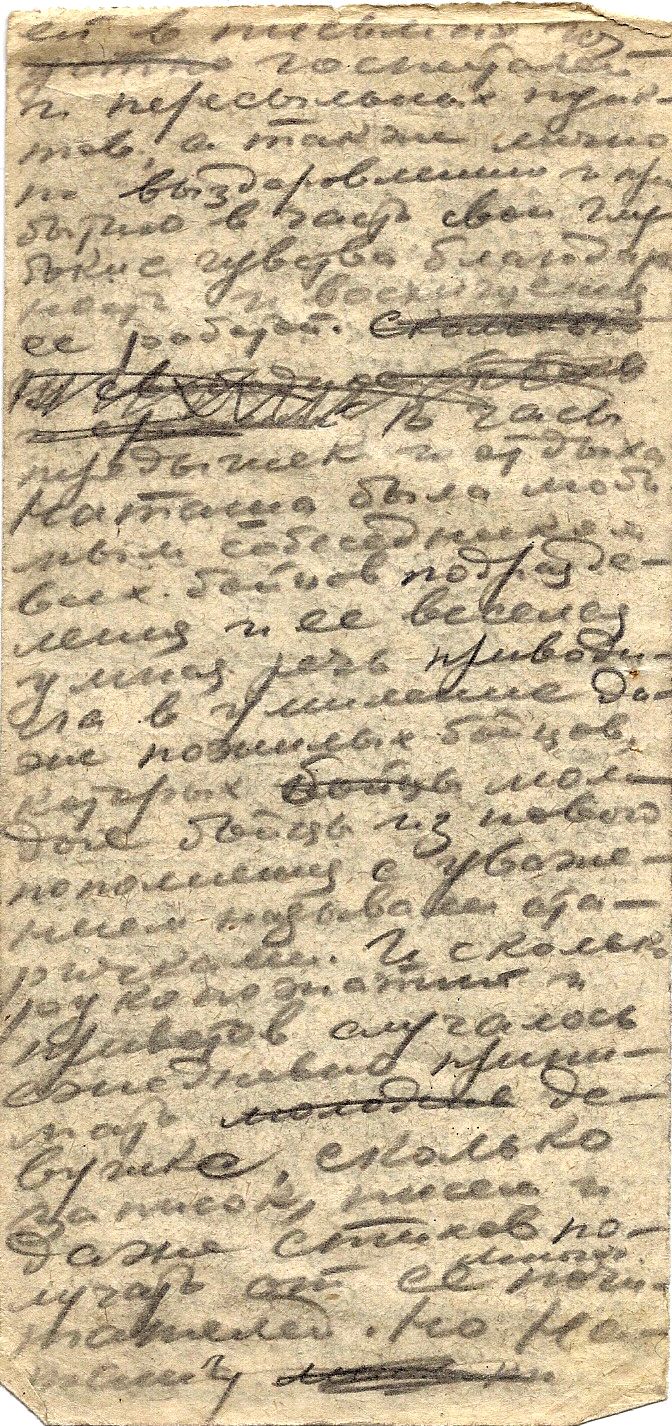 ей в письмах из
госпиталей
и пересыльных пунк-
тов, а также лично
по выздоровлению и при
бытию в часть свои глу
бокие чувства благодар
ность и восхищения
ее работой.
В часы
передышек и отдыха
Наташа была люби
мым собеседником
всех бойцов подразде-
ления и ее веселая
умная речь приводи-
ла в умиление да-
же пожилых бойцов,
которых бойцы моло-
дые бойцы из нового
пополнения с уваже-
нием называли ста-
ричками. И сколько
рукопожатий и
приветов случалось
ежедневно прини-
мать молодой де-
вушке, сколько
записок, писем и
даже стихов по-
лучать от ее почи-
тателей. Но На-
ташу